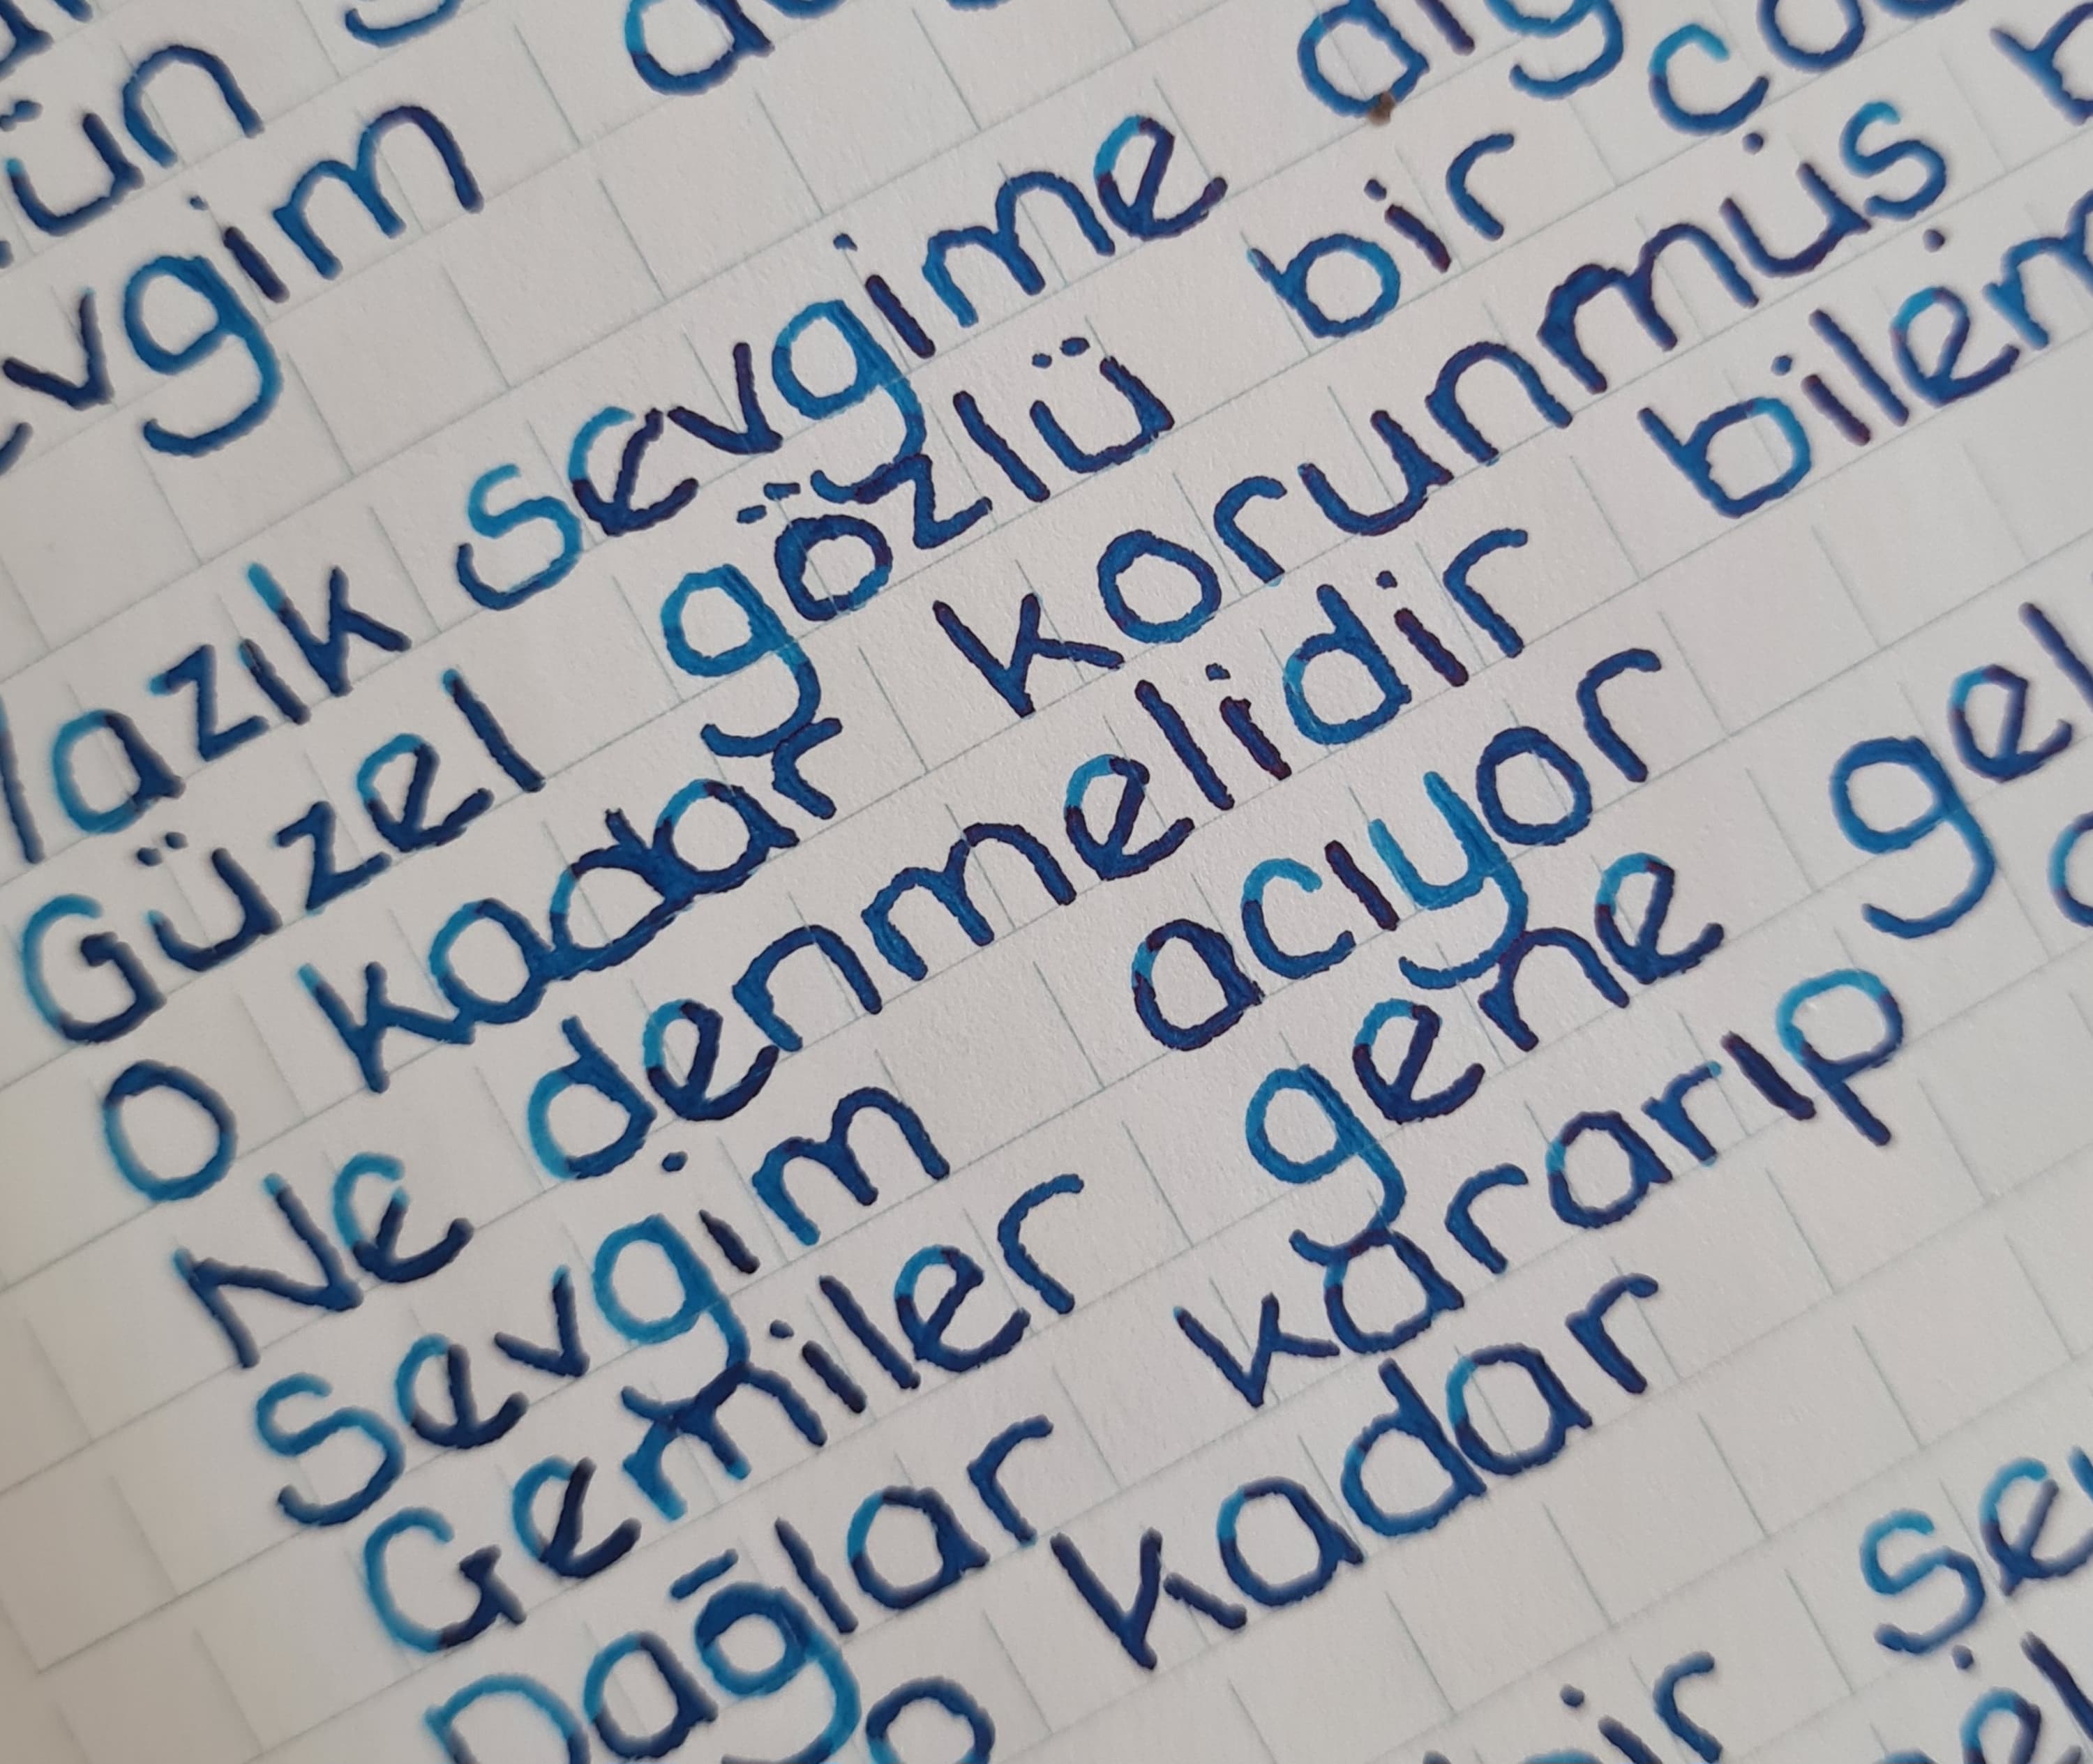 ün
vgim
azık sevgime
Güzel gözlü bir
O kadar korunmuş
Ne denmelidir bilem
Sevgim acıyor
Gemiler gene gel
Dağlar kararıp
o kadar